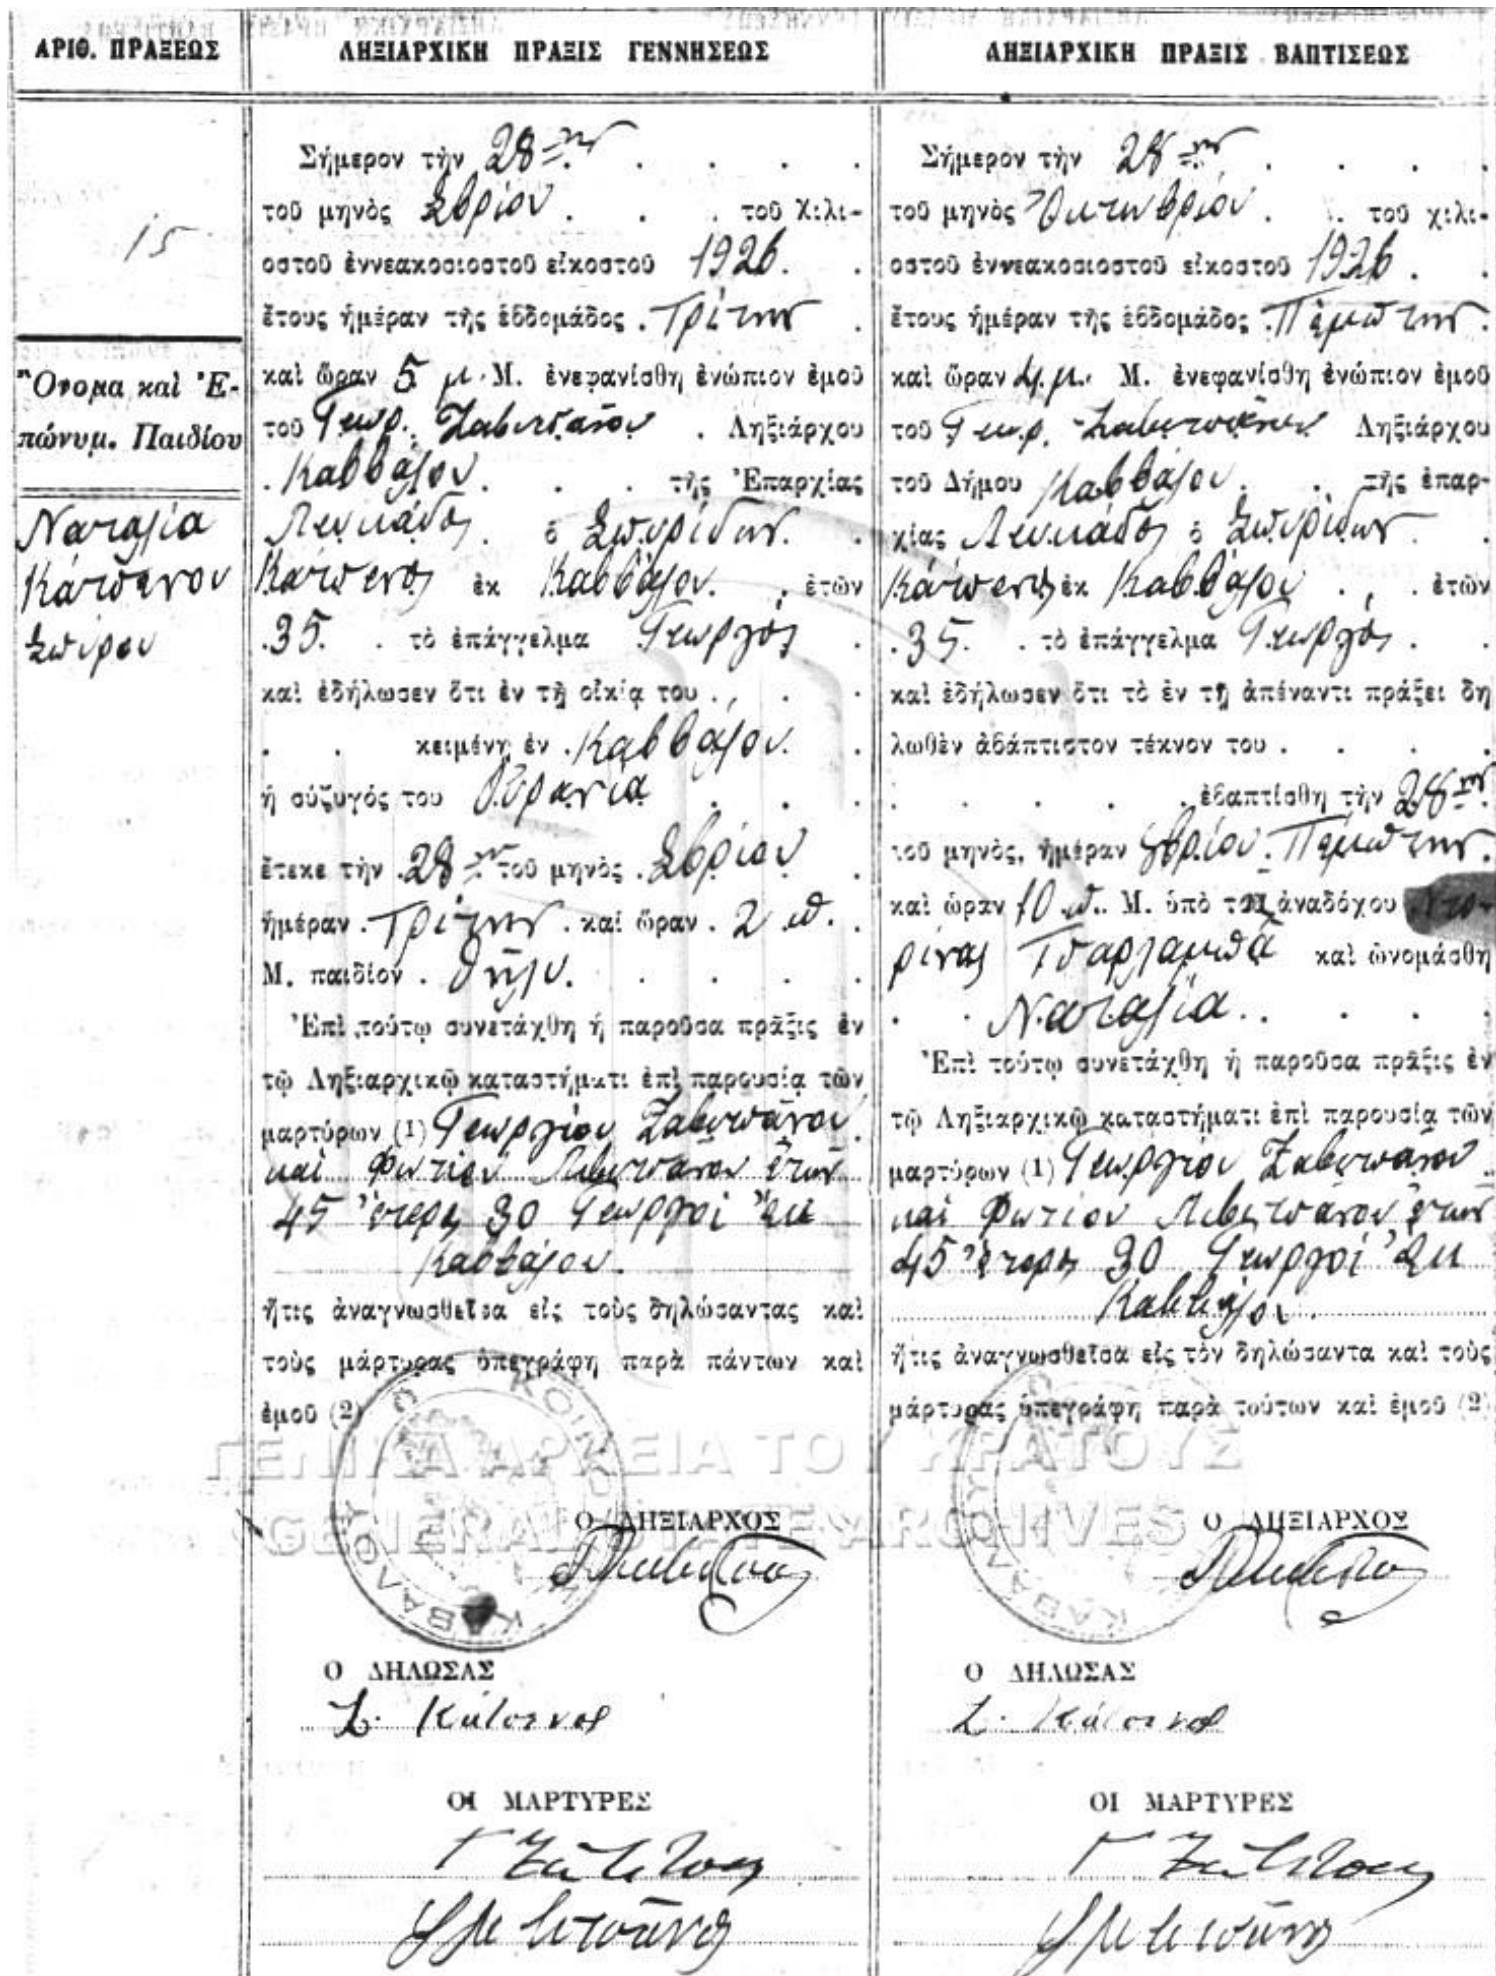 ΑΡΙΘ. ΠΡΑΞΕΩΣ
15
Ὄνομα καὶ Ἐ-
πώνυμ. Παιδίου
Ναταλία
Κάτσενου
Σπύρου
ΛΗΞΙΑΡΧΙΚΗ ΠΡΑΞΙΣ ΓΕΝΝΗΣΕΩΣ
Σήμερον τὴν 28ην
τοῦ μηνὸς 7βρίου . . . τοῦ χιλι-
οστοῦ ἐννεακοσιοστοῦ εἰκοστοῦ 1926.
ἔτους ἡμέραν τῆς ἑβδομάδος . Τρίτην .
καὶ ὥραν 5 μ. Μ. ἐνεφανίσθη ἐνώπιον ἐμοῦ
τοῦ Γεωρ. . Ληξιάρχου
. Καββάλου . . . τῆς Ἐπαρχίας
Λευκάδος ὁ Σπυρίδων .
Κάτσενος ἐκ Καββάλου . . ἐτῶν
.35. . τὸ ἐπάγγελμα Γεωργός .
καὶ ἐδήλωσεν ὅτι ἐν τῇ οἰκίᾳ του . . .
. . κειμένῃ ἐν . Καββάλου .
ἡ σύζυγός του Οὐρανία . . .
ἔτεκε τὴν 28ην τοῦ μηνὸς . 7βρίου .
ἡμέραν . Τρίτην . καὶ ὥραν . 2 π. .
Μ. παιδίον . θῆλυ. . . . .
Ἐπὶ τούτῳ συνετάχθη ἡ παροῦσα πρᾶξις ἐν
τῷ Ληξιαρχικῷ καταστήματι ἐπὶ παρουσίᾳ τῶν
μαρτύρων (1) Γεωργίου Ζαβιτσάνου
καὶ Φωτίου Λιβιτσάνου ἐτῶν
45 ἕτερος 30 Γεωργοί ἐκ
Καββάλου.
ἥτις ἀναγνωσθεῖσα εἰς τοὺς δηλώσαντας καὶ
τοὺς μάρτυρας ὑπεγράφη παρὰ πάντων καὶ
ἐμοῦ (2)
Ο ΛΗΞΙΑΡΧΟΣ
Ο ΔΗΛΩΣΑΣ
Σ. Κάτσενος
ΟΙ ΜΑΡΤΥΡΕΣ
ΛΗΞΙΑΡΧΙΚΗ ΠΡΑΞΙΣ ΒΑΠΤΙΣΕΩΣ
Σήμερον τὴν 28ην
τοῦ μηνὸς Ὀκτωβρίου . . τοῦ χιλι-
οστοῦ ἐννεακοσιοστοῦ εἰκοστοῦ 1926 . .
ἔτους ἡμέραν τῆς ἑβδομάδος . Πέμπτην .
καὶ ὥραν 4 μ. Μ. ἐνεφανίσθη ἐνώπιον ἐμοῦ
τοῦ Γεωρ. Ληξιάρχου
τοῦ Δήμου Καββάλου . . τῆς ἐπαρ-
χίας Λευκάδος ὁ Σπυρίδων .
Κάτσενος ἐκ Καββάλου . , . ἐτῶν
.35. . τὸ ἐπάγγελμα Γεωργός . .
καὶ ἐδήλωσεν ὅτι τὸ ἐν τῇ ἀπέναντι πράξει δη
λωθὲν ἀβάπτιστον τέκνον του . . . .
. . . . . ἐβαπτίσθη τὴν 28ην
τοῦ μηνὸς, ἡμέραν 8βρίου . Πέμπτην .
καὶ ὥραν 10 π. . Μ. ὑπὸ τοῦ ἀναδόχου
ρίνας Τσαρλαμπᾶ καὶ ὠνομάσθη
. . Ναταλία . . . . .
Ἐπὶ τούτῳ συνετάχθη ἡ παροῦσα πρᾶξις ἐν
τῷ Ληξιαρχικῷ καταστήματι ἐπὶ παρουσίᾳ τῶν
μαρτύρων (1) Γεωργίου Ζαβιτσάνου
καὶ Φωτίου Λιβιτσάνου ἐτῶν
45 ἕτερος 30 Γεωργοί ἐκ
Καββάλου
ἥτις ἀναγνωσθεῖσα εἰς τὸν δηλώσαντα καὶ τοὺς
μάρτυρας ὑπεγράφη παρὰ τούτων καὶ ἐμοῦ (2)
Ο ΛΗΞΙΑΡΧΟΣ
Ο ΔΗΛΩΣΑΣ
Σ. Κάτσενος
ΟΙ ΜΑΡΤΥΡΕΣ
ΓΕΝΙΚΑ ΑΡΧΕΙΑ ΤΟΥ ΚΡΑΤΟΥΣ
GENERAL STATE ARCHIVES